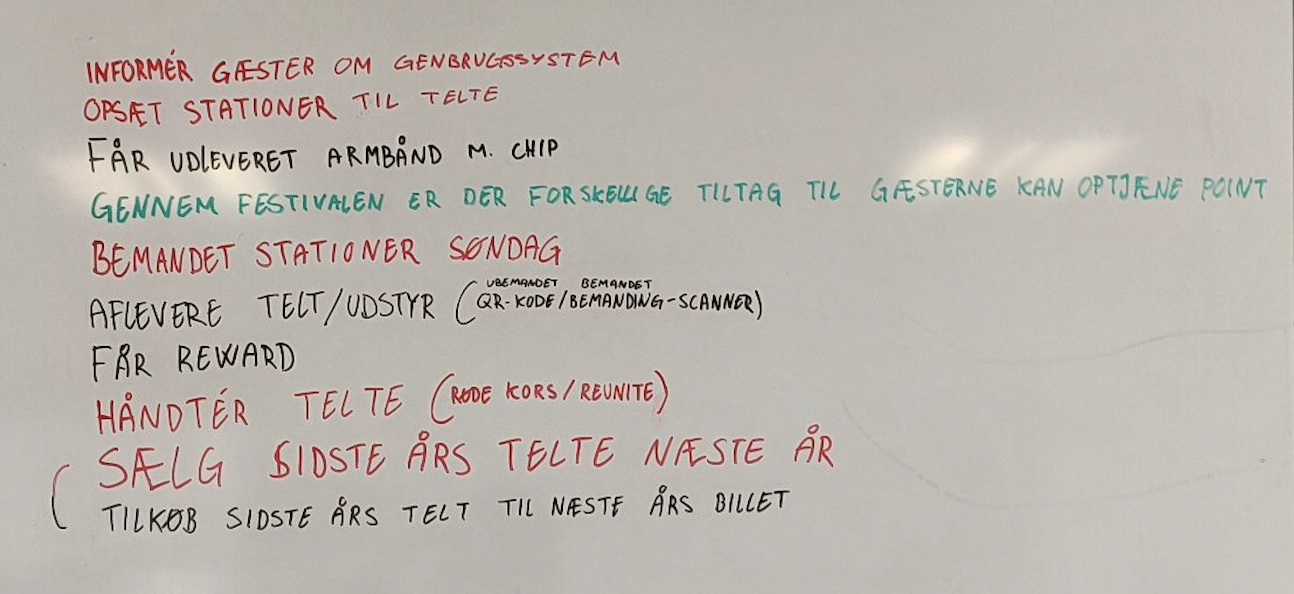 INFORMÉR GÆSTER OM GENBRUGSSYSTEM
OPSÆT STATIONER TIL TELTE
FÅR UDLEVERET ARMBÅND M. CHIP
GENNEM FESTIVALEN ER DER FORSKELLIGE TILTAG TIL GÆSTERNE KAN OPTJÆNE POINT
BEMANDET STATIONER SØNDAG
UBEMANDET BEMANDET
AFLEVERE TELT/UDSTYR (QR-KODE/BEMANDING-SCANNER)
FÅR REWARD
HÅNDTÉR TELTE (RØDE KORS/REUNITE)
SÆLG SIDSTE ÅRS TELTE NÆSTE ÅR
TILKØB SIDSTE ÅRS TELT TIL NÆSTE ÅRS BILLET